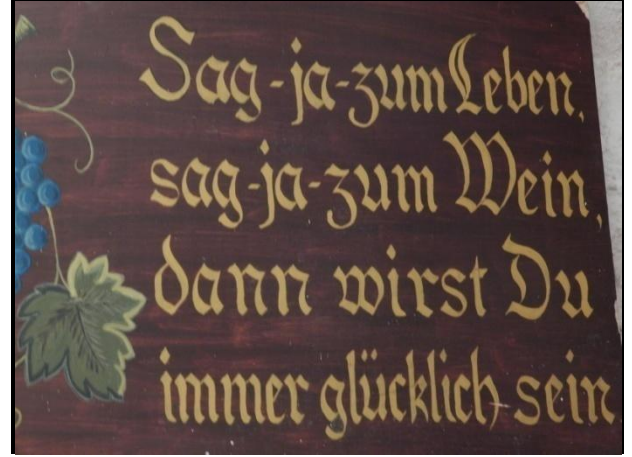 Sag-ja-zum Leben,
sag-ja-zum Wein,
dann wirst Du
immer glücklich sein